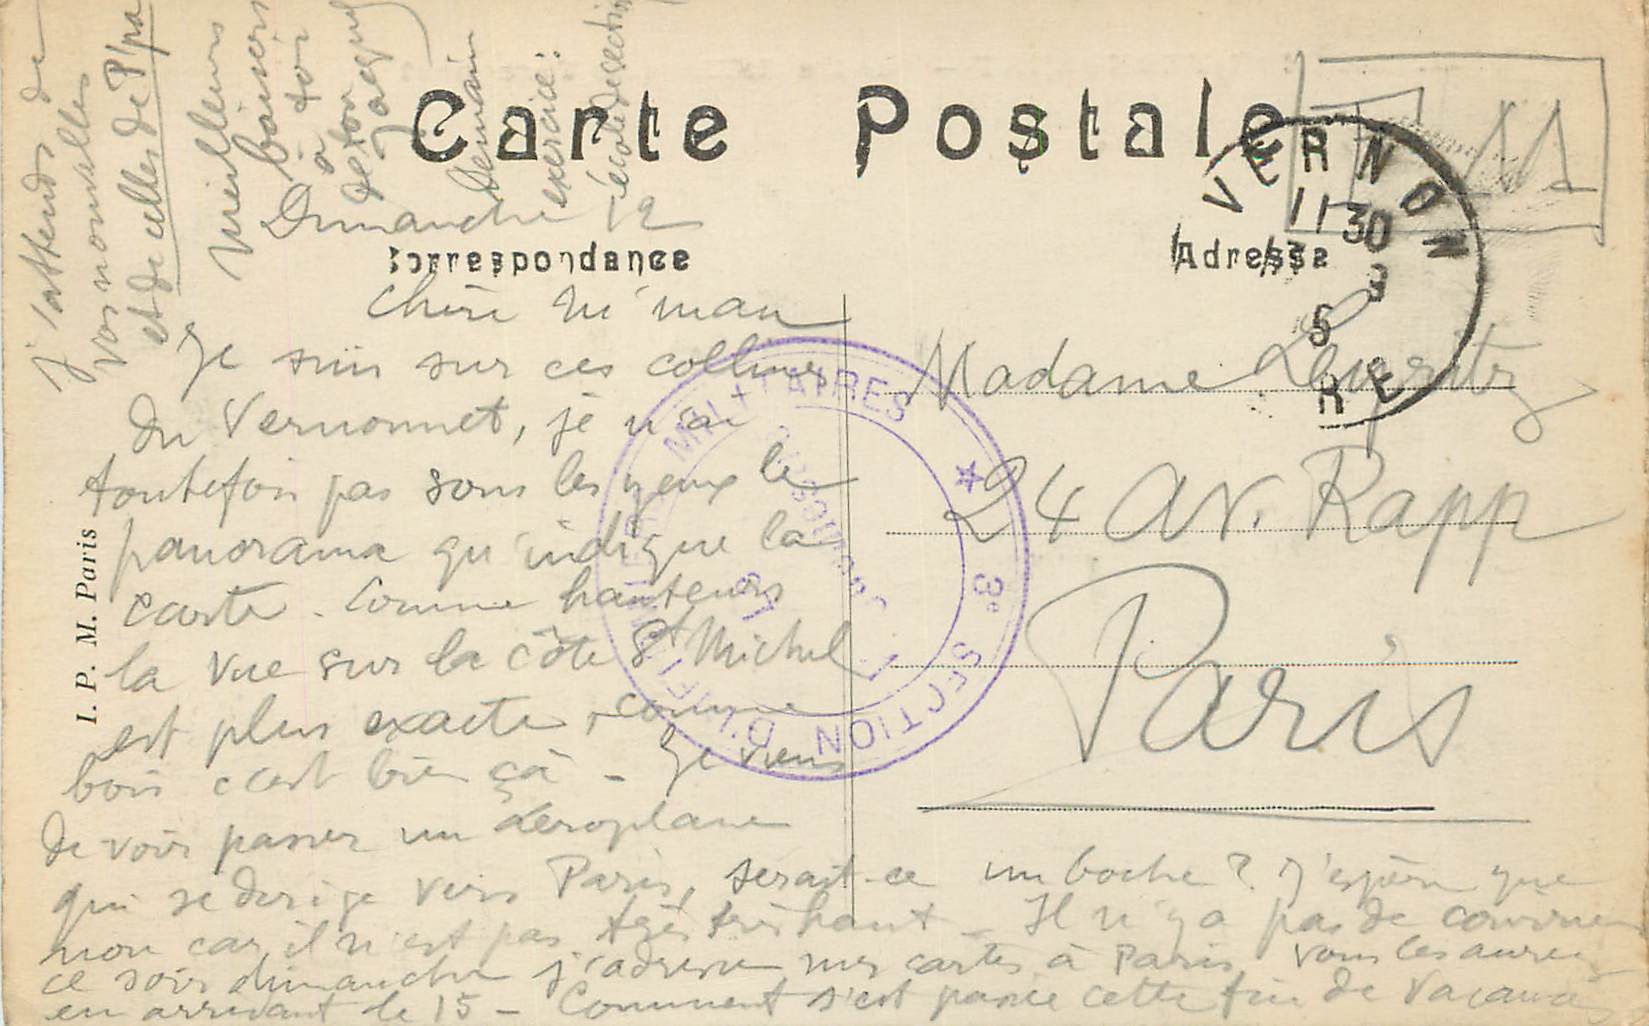 Carte Postale
Correspondance
Adresse
VERNON
1130
3
5
RE
Dimanche 12
Chère M'man
Je suis sur ces collines
du Vernonnet, je n'ai
toutefois pas sous les yeux le
panorama qu'indique la
carte. Comme hauteurs
la vue sur la côte St Michel
est plus exacte, comme
bois c'est bien ça - Je viens
de voir passer un aéroplane
qui se dirige vers Paris, serait-ce un boche? J'espère que
non car il n'est pas très très haut - Il n'y a pas de courrier
ce soir dimanche j'adresse mes cartes à Paris vous les aurez
en arrivant le 15 - Comment s'est passée cette fin de vacances
j'attends de
vos nouvelles
et de celles de P'pa
meilleurs
baisers
à toi
de ton
Jacques
Demain
exercice:
école de section
Madame
24 av. Rapp
Paris
I. P. M. Paris
MILITAIRES ★ 3e SECTION D'INFIRMIERS